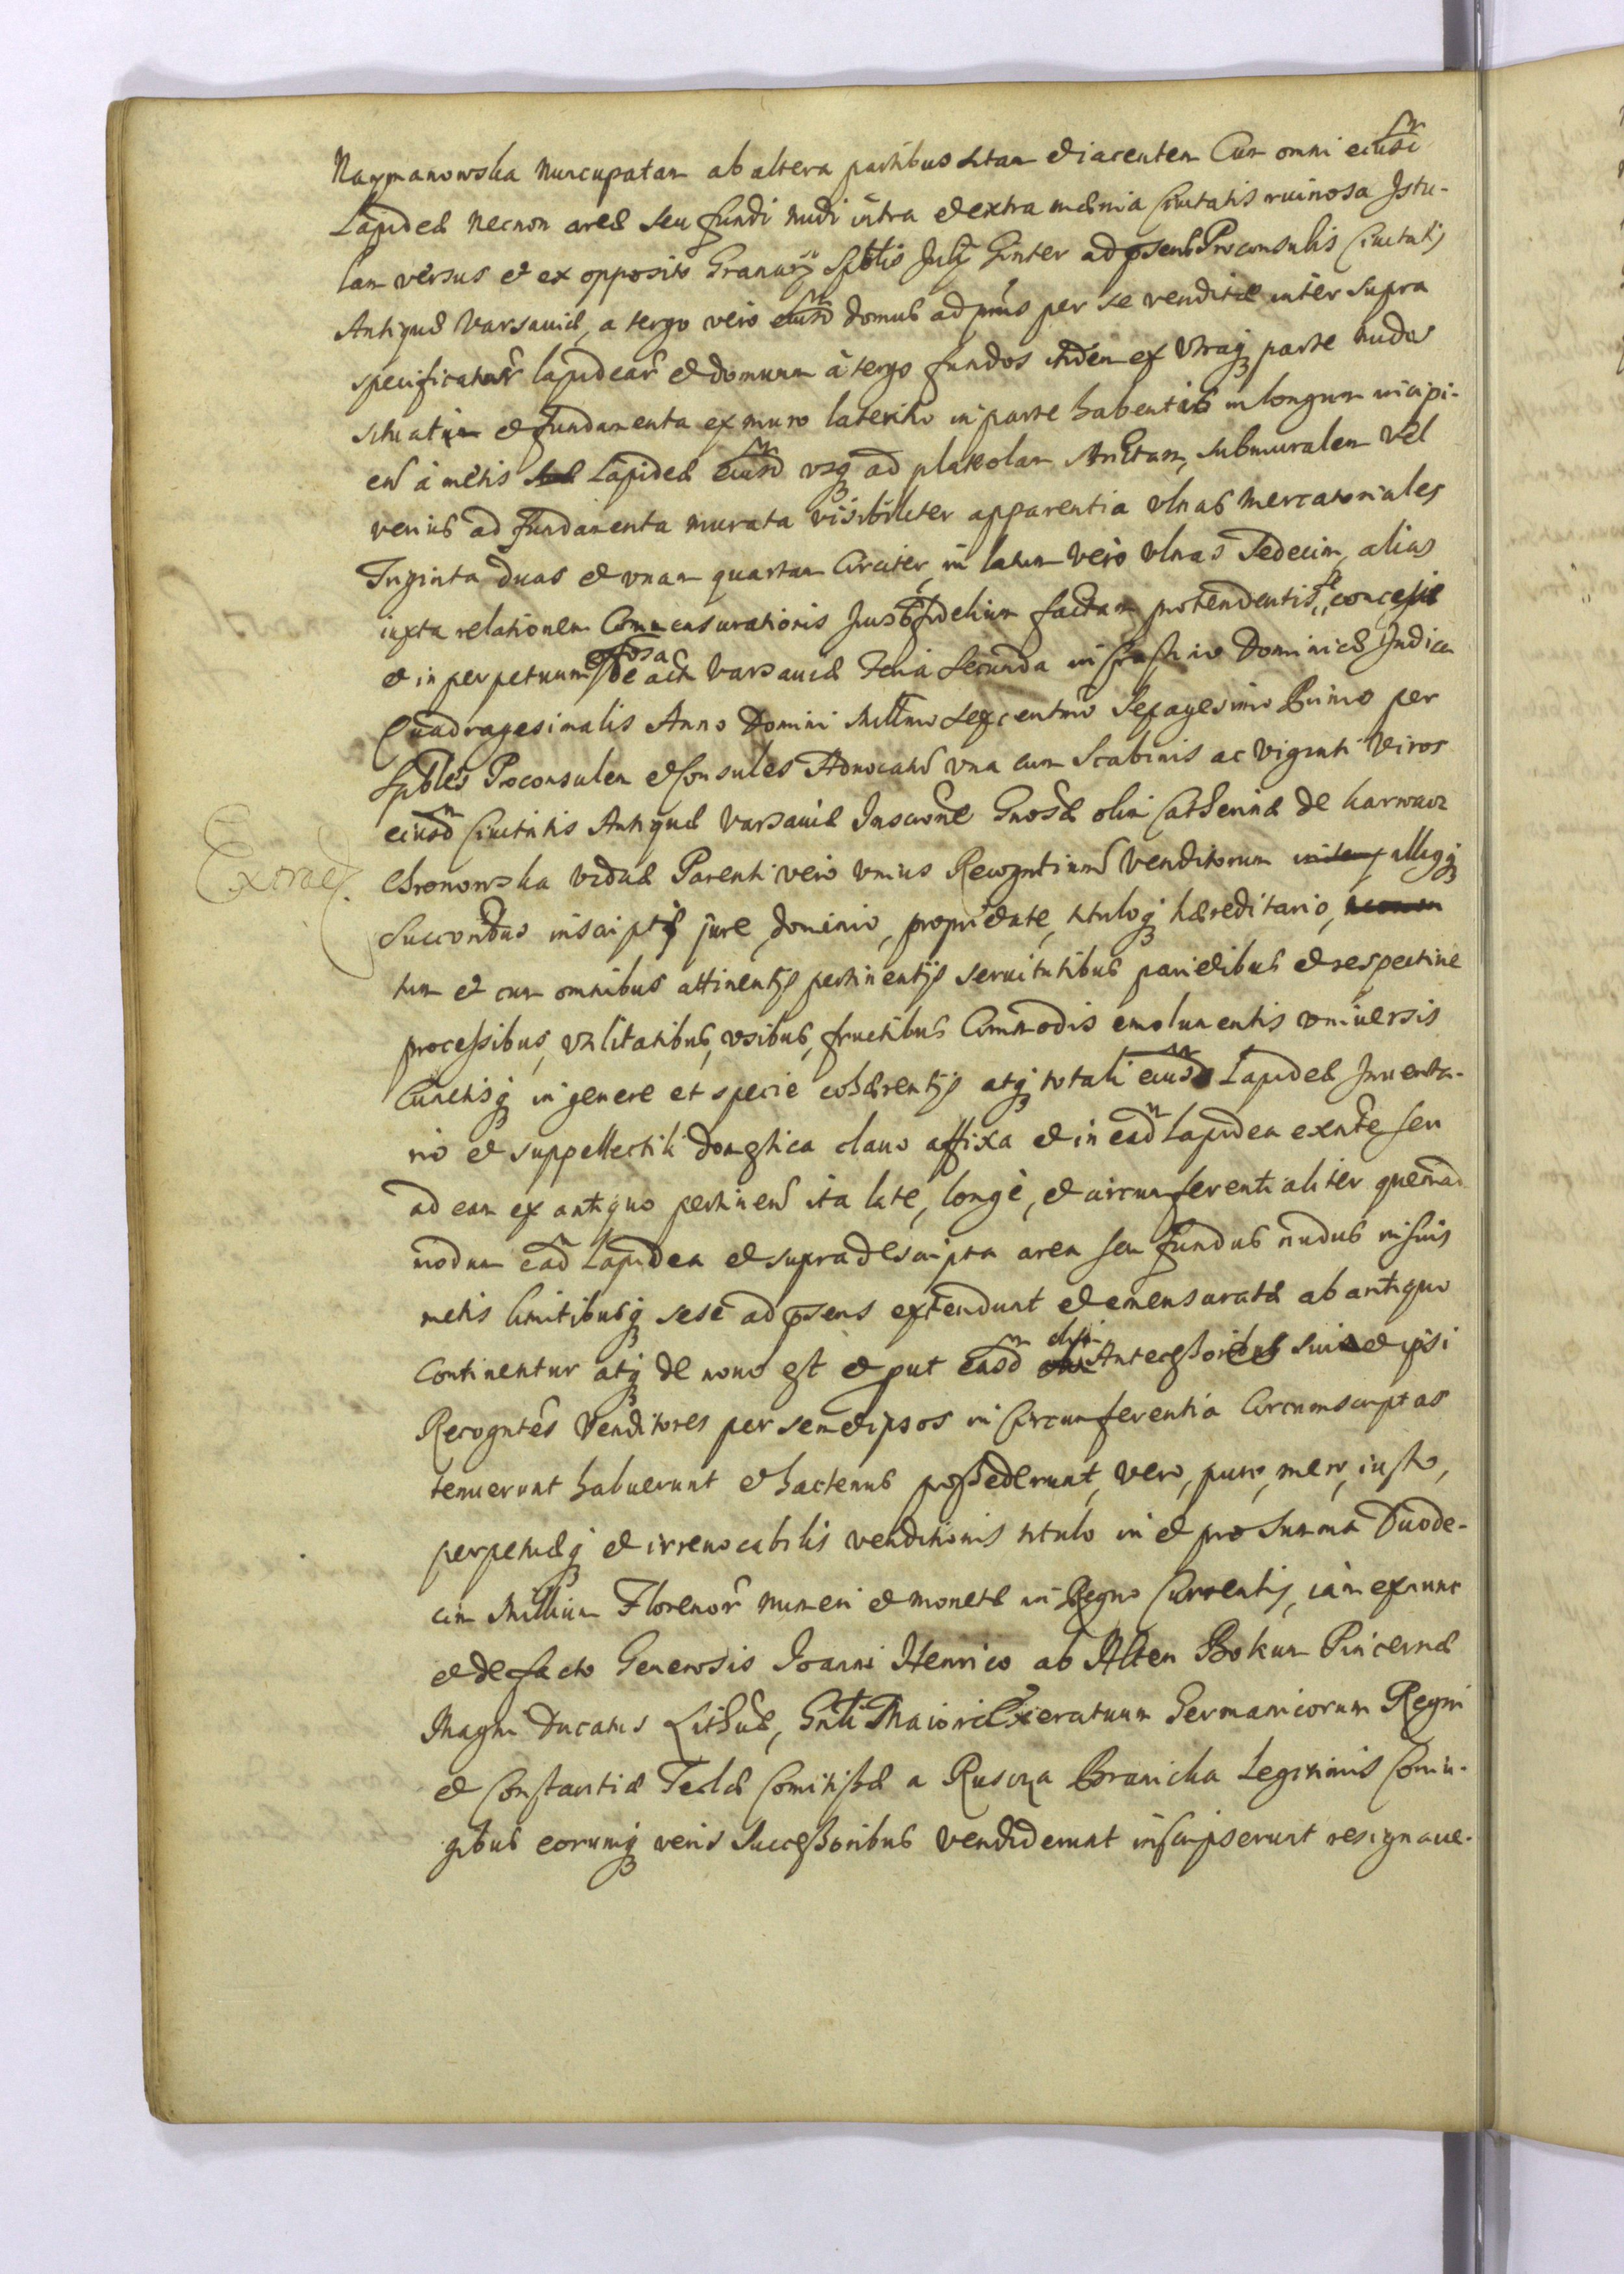 Naymanowska nuncupatam ab altera partibus sitam et iacentem Cum omni eiusd
Lapideæ necnon areæ seu fundi nudi intra et extra mænia Ciuitatis ruinosa Istu-
lam versus et ex opposito Granarij Spblis Julij Ginter ad psens Proconsulis Ciuitatis
Antiquæ Varsauiæ, a tergo vero eiusd domus ad pns per se venditæ inter supra
specificatar lapidear et domum à tergo fundos itidem ex vtraq parte nudos
situatum et fundamenta ex muro lateritio in parte habentis in longum incipi-
en à metis Lapideæ eiusd vsq ad plateolam strictam, submuralem vel
verius ad fundamenta murata visibiliter apparentia vlnas mercatoriales
Triginta duas et vnam quartam Circiter, in latum vero vlnas Sedecim, alias
iuxta relationem Commensurationis Jurisfidelium factam protendentis, concessæ
et in perpetuum De act Varsauiæ feria secunda in Crastino Dominicæ Judica
Quadragesimalis Anno Domini Millmo sexcentmo Sexagesimo Primo per
Spbles Proconsulem et Consules Aduocatu vna cum Scabinis ac Viginti Viros
eiusd Ciuitatis Antiquæ Varsauiæ Inscrone Gnosæ olim Catherinæ de Karwacz
Chronowska viduæ Parenti vero vnius Recogntium Venditorum illiqq
Exorae
Succoribus inscriptis jure, dominio, proprietate, tituloq hæreditario,
tum et cum omnibus attinentijs pertinentijs seruitutibus parietibus et respectiue
processibus, vtilitatibus, vsibus, fructibus Commodis emolumentis vniuersis
Cunctisq in genere et specie cohærentijs atq totali eiusd Lapideæ Inuenta-
rio et suppellectili domestica clauo affixa et in ead Lapidea exnte seu
ad eam ex antiquo pertinen ita late, longè, et circumferentialiter quemad
modum ead Lapidea et supradescripta area seu fundus nudus in suis
metis limitibusq sese ad psens extendunt et emensurata ab antiquo
Continentur atq de nouo est et put easd Antecessoribus suis et ipsi
Recogntes Venditores per semetipsos in Circumferentia Circumscriptas
tenuerunt habuerunt et hactenus possederunt, vero, puro, mero, iusto,
perpetuæq et irreuocabilis venditionis titulo in et pro Summa Duode-
cim Millium Florenor numeri et monetæ in Regno Currentis, iam exnunc
et de facto Generosis Joanni Henrico ab Alten Bokum Pincernæ
Magni Ducatus Lithuæ, Gnli Maiori Exercituum Germanicorum Regni
et Constantiæ Teclæ Comitissæ a Ruscza Branicka Legitimis Coniu-
gibus eorumq veris Successoribus vendiderunt inscripserunt resignaue-